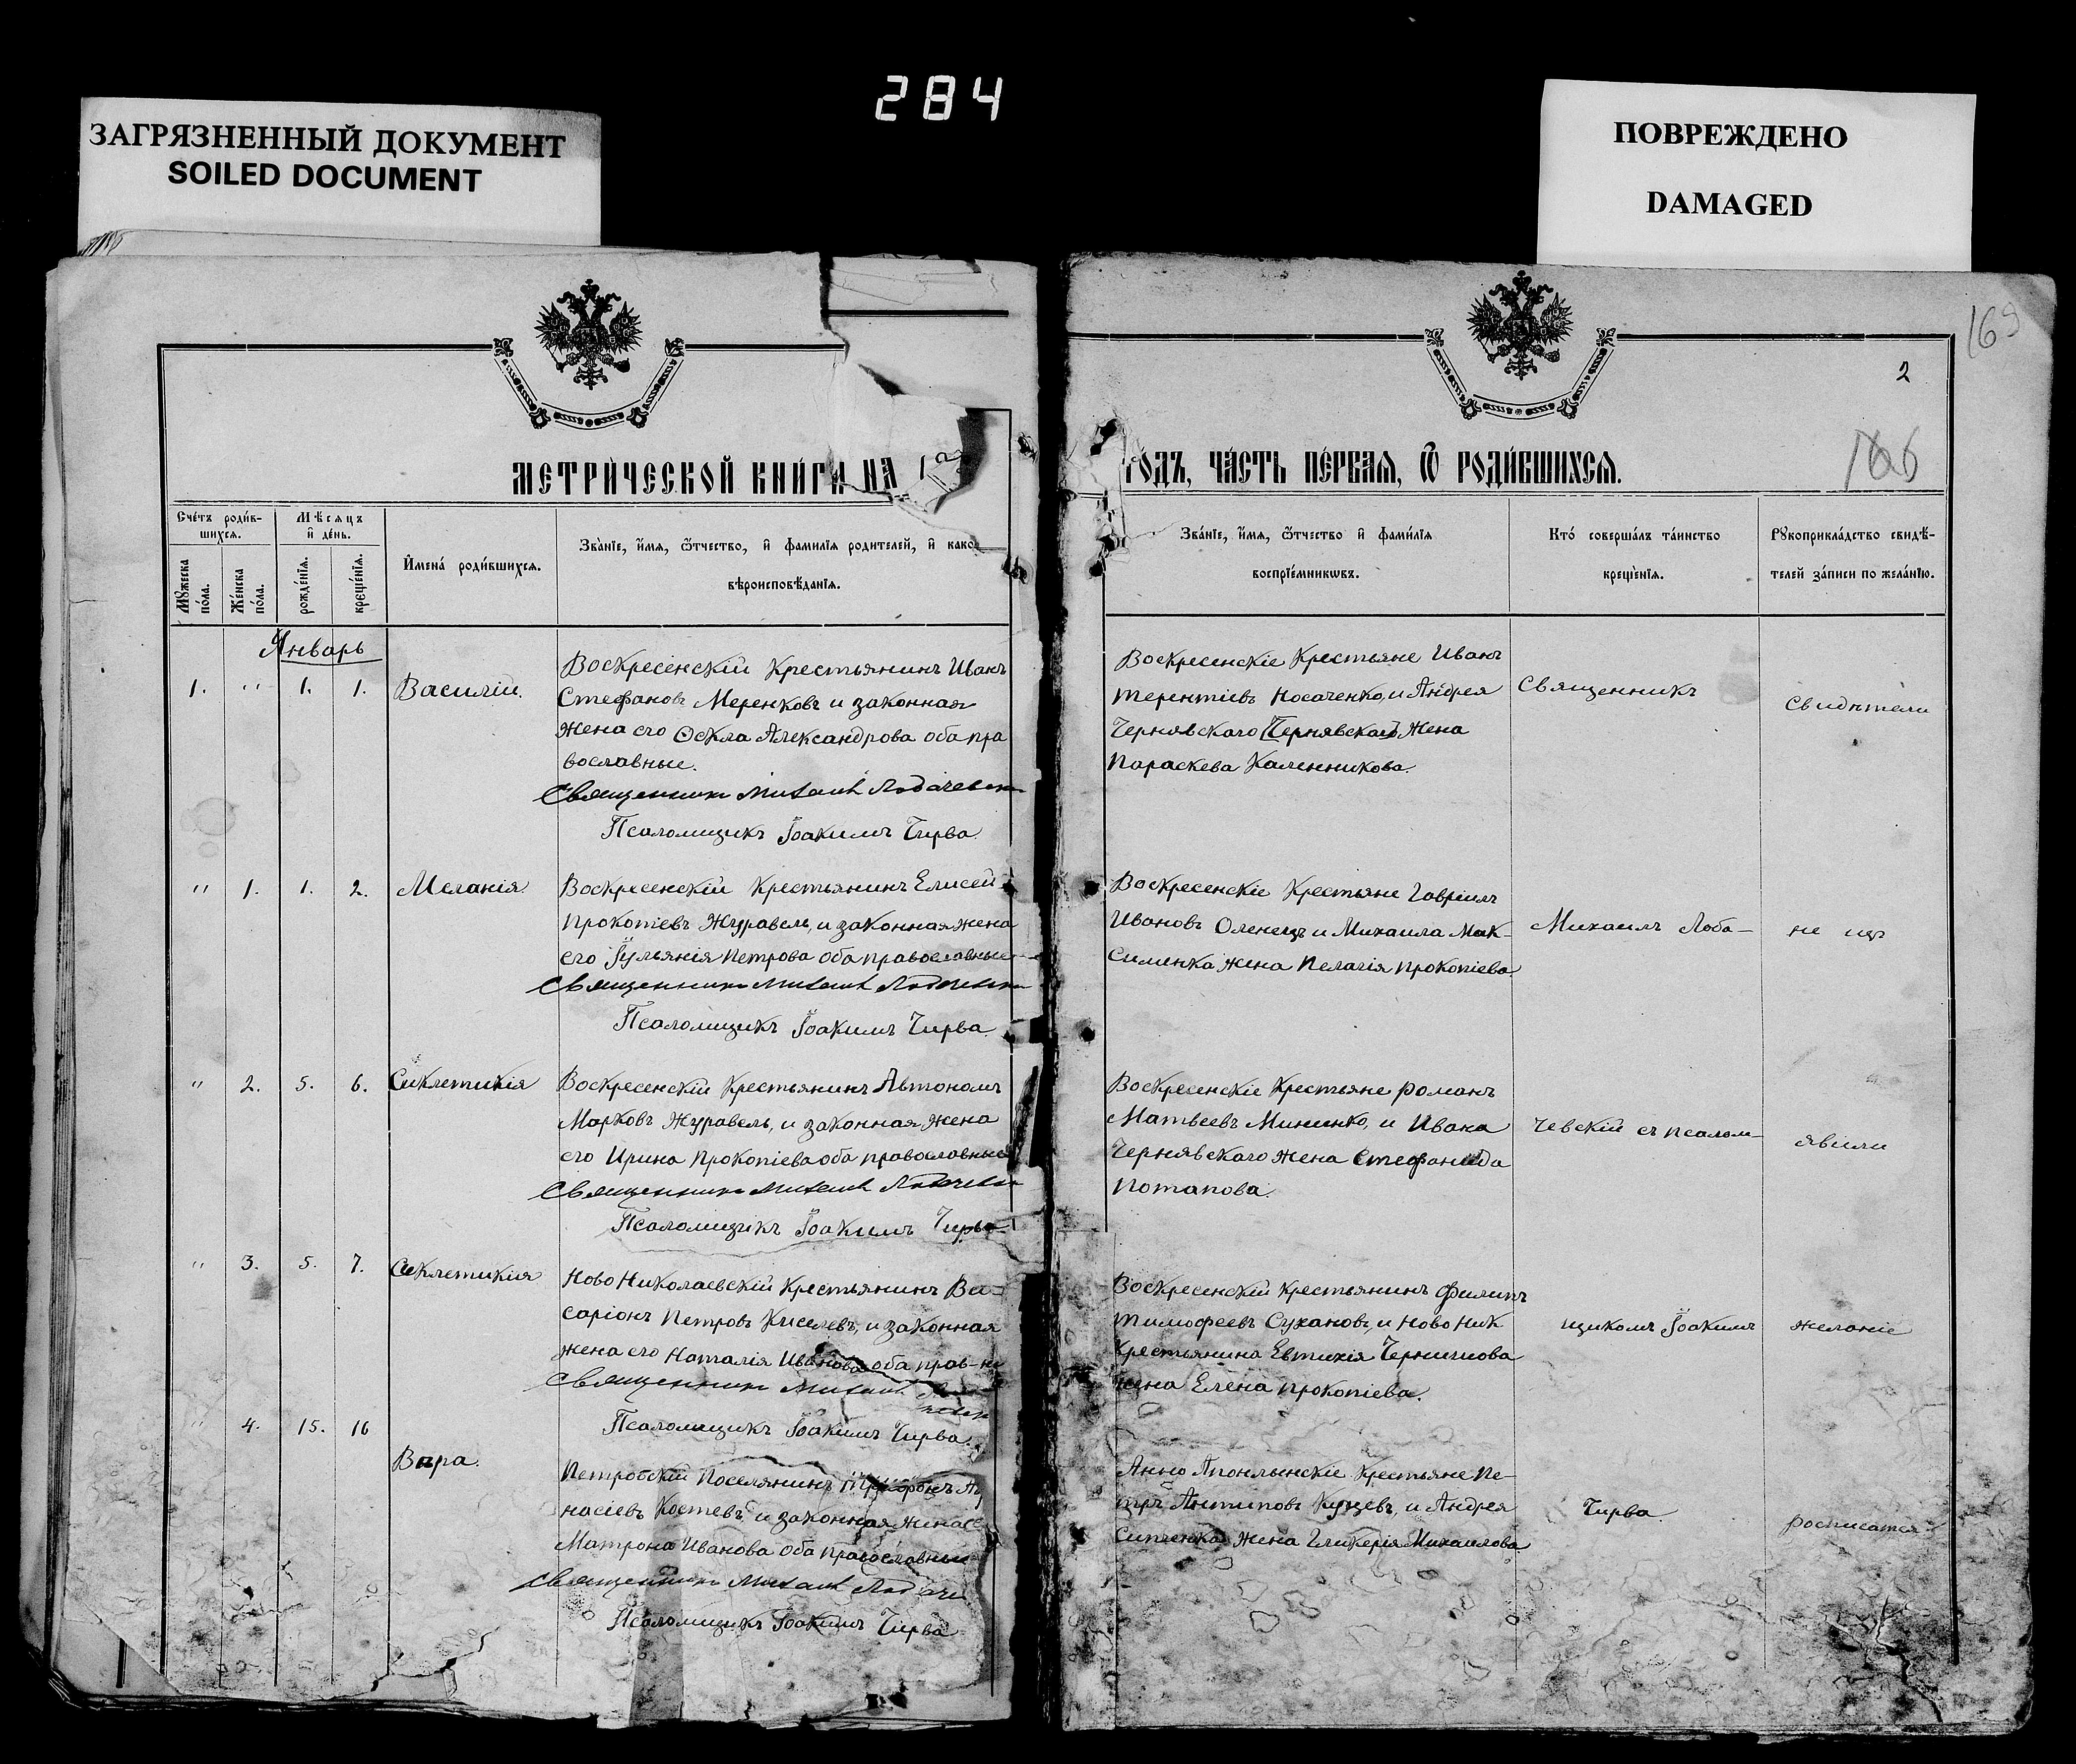 284
ЗАГРЯЗНЕННЫЙ ДОКУМЕНТ
SOILED DOCUMENT
ПОВРЕЖДЕНО
DAMAGED
169
2
166
МЕТРИ́ЧЕСКОЙ КНИ́ГИ НА
ГО́ДЪ, ЧА́СТЬ ПЕ́РВАЯ, Ѿ РОДИ́ВШИХСЯ.
Сче́тъ роди́в-
шихся.
Мꙋ́жеска
по́ла.
Же́нска
по́ла.
Мѣсяцъ
и҆ де́нь.
рожде́нїя.
креще́нїя.
И҆мена́ роди́вшихся.
Зва́нїе, и҆́мя, ѻ҆́тчество, и҆ фами́лїя родителей, и҆ како
вѣроисповѣ́данїя.
Зва́нїе, и҆́мя, ѻ҆́тчество и҆ фами́лїя
воспрїе́мникѡвъ.
Кто́ соверша́лъ та́инство
креще́нїя.
Рꙋкоприкла́дство свидѣ́-
телей за́писи по жела́нїю.
Январь
1. " 1. 1. Василій.
Воскресенскій Крестьянинъ Иванъ
Стефановъ Меренковъ и законная
жена его Ѳекла Александрова оба пра
вославные.
Священникъ Михаилъ
Псаломщикъ Іоакимъ Чирва.
Воскресенскіе Крестьяне Иванъ
Терентіевъ Носаченко, и Андрея
Чернявскаго (Чернявскаго) жена
Параскева Каленникова.
Священникъ
Свидѣтели
" 1. 1. 2. Меланія
Воскресенскій Крестьянинъ Елисей
Прокопіевъ Журавель, и законная жена
его Іульянія Петрова оба православные
Священникъ Михаилъ
Псаломщикъ Іоакимъ Чирва
Воскресенскіе Крестьяне Гавріилъ
Ивановъ Оленецъ и Михаила Мак-
сименка жена Пелагія Прокопіева.
Михаилъ Лоба-
не изъ
" 2. 5. 6. Сиклетикія
Воскресенскій Крестьянинъ Автономъ
Марковъ Журавель, и законная жена
его Ирина Прокопіева оба православные
Священникъ Михаилъ
Псаломщикъ Іоакимъ Чирва
Воскресенскіе Крестьяне Романъ
Матвеевъ Миненко, и Ивана
Чернявскаго жена Стефанида
Потапова.
чевскій съ псалом-
явили
" 3. 5. 7. Сиклетикія
Ново Николаевскій Крестьянинъ Вис-
саріонъ Петровъ Киселевъ, и законная
жена его Наталія Иванова оба прав-
Священникъ Михаилъ
Псаломщикъ Іоакимъ Чирва.
Воскресенскій Крестьянинъ Филипъ
Тимофеевъ Сухановъ, и Ново Ник
Крестьянина Евтихія
жена Елена Прокопіева.
щикомъ Іоакимъ
желаніе
" 4. 15. 16
Вѣра.
Петровскій Поселянинъ
насіевъ Костевъ, и законная жена
Матрона Иванова оба православные
Священникъ Михаилъ
Псаломщикъ Іоакимъ Чирва
Крестьяне Пе-
тръ Антиповъ и Андрея
жена Гликерія Михаилова
Чирва.
росписатся